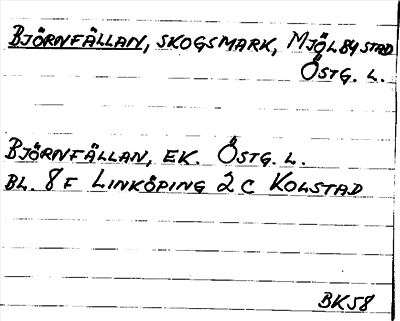 BJÖRNFÄLLAN, SKOGSMARK, MJÖLBY STAD
ÖSTG. L.
BJÖRNFÄLLAN, EK. ÖSTG. L.
BL. 8 F LINKÖPING 2 C KOLSTAD
BK58